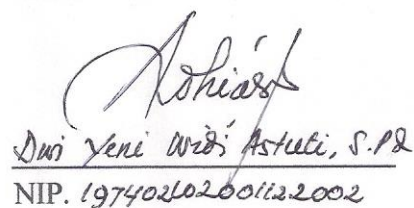 Dwi Yeni Widi Astuti, S.Pd
NIP. 197402102001122002